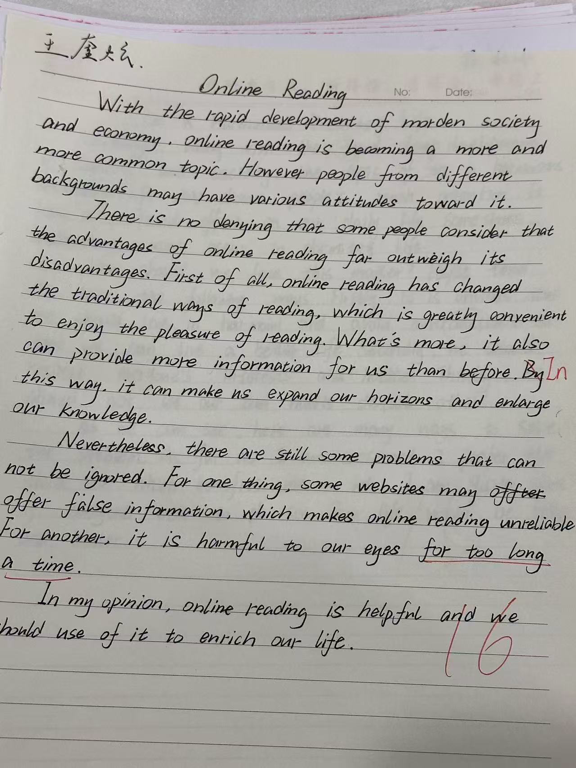 王奎
Online Reading
No: Date:
With the rapid development of morden society
and economy, online reading is becoming a more and
more common topic. However people from different
backgrounds may have various attitudes toward it.
There is no denying that some people consider that
the advantages of online reading far outweigh its
disadvantages. First of all, online reading has changed
the traditional ways of reading, which is greatly convenient
to enjoy the pleasure of reading. What's more, it also
can provide more information for us than before. By In
this way, it can make us expand our horizons and enlarge
our knowledge.
Nevertheless, there are still some problems that can
not be ignored. For one thing, some websites may offter
offer false information, which makes online reading unreliable
For another, it is harmful to our eyes for too long
a time.
In my opinion, online reading is helpful and we
hould use of it to enrich our life.
16